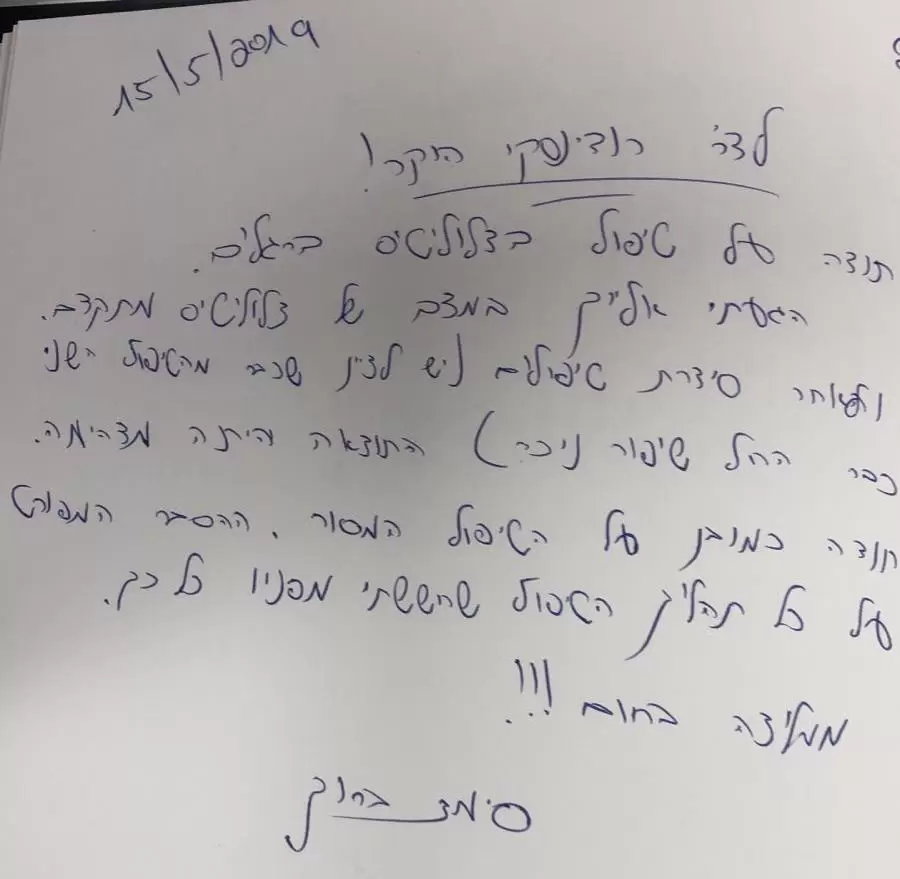 15/5/2019
לדר' רודינסקי היקר!
תודה על טיפול בצלוליטיס ברגליים.
הגעתי אלייך במצב של צלוליטיס מתקדם.
ולאחר סידרת טיפולים (יש לציין שכבר מהטיפול השני
כבר החל שיפור ניכר) התוצאה הייתה מדהימה.
תודה כמובן על הטיפול המסור, ההסבר המפורט
על כל תהליך הטיפול שחששתי מפניו כל כך.
ממליצה בחום!!!
ברוך